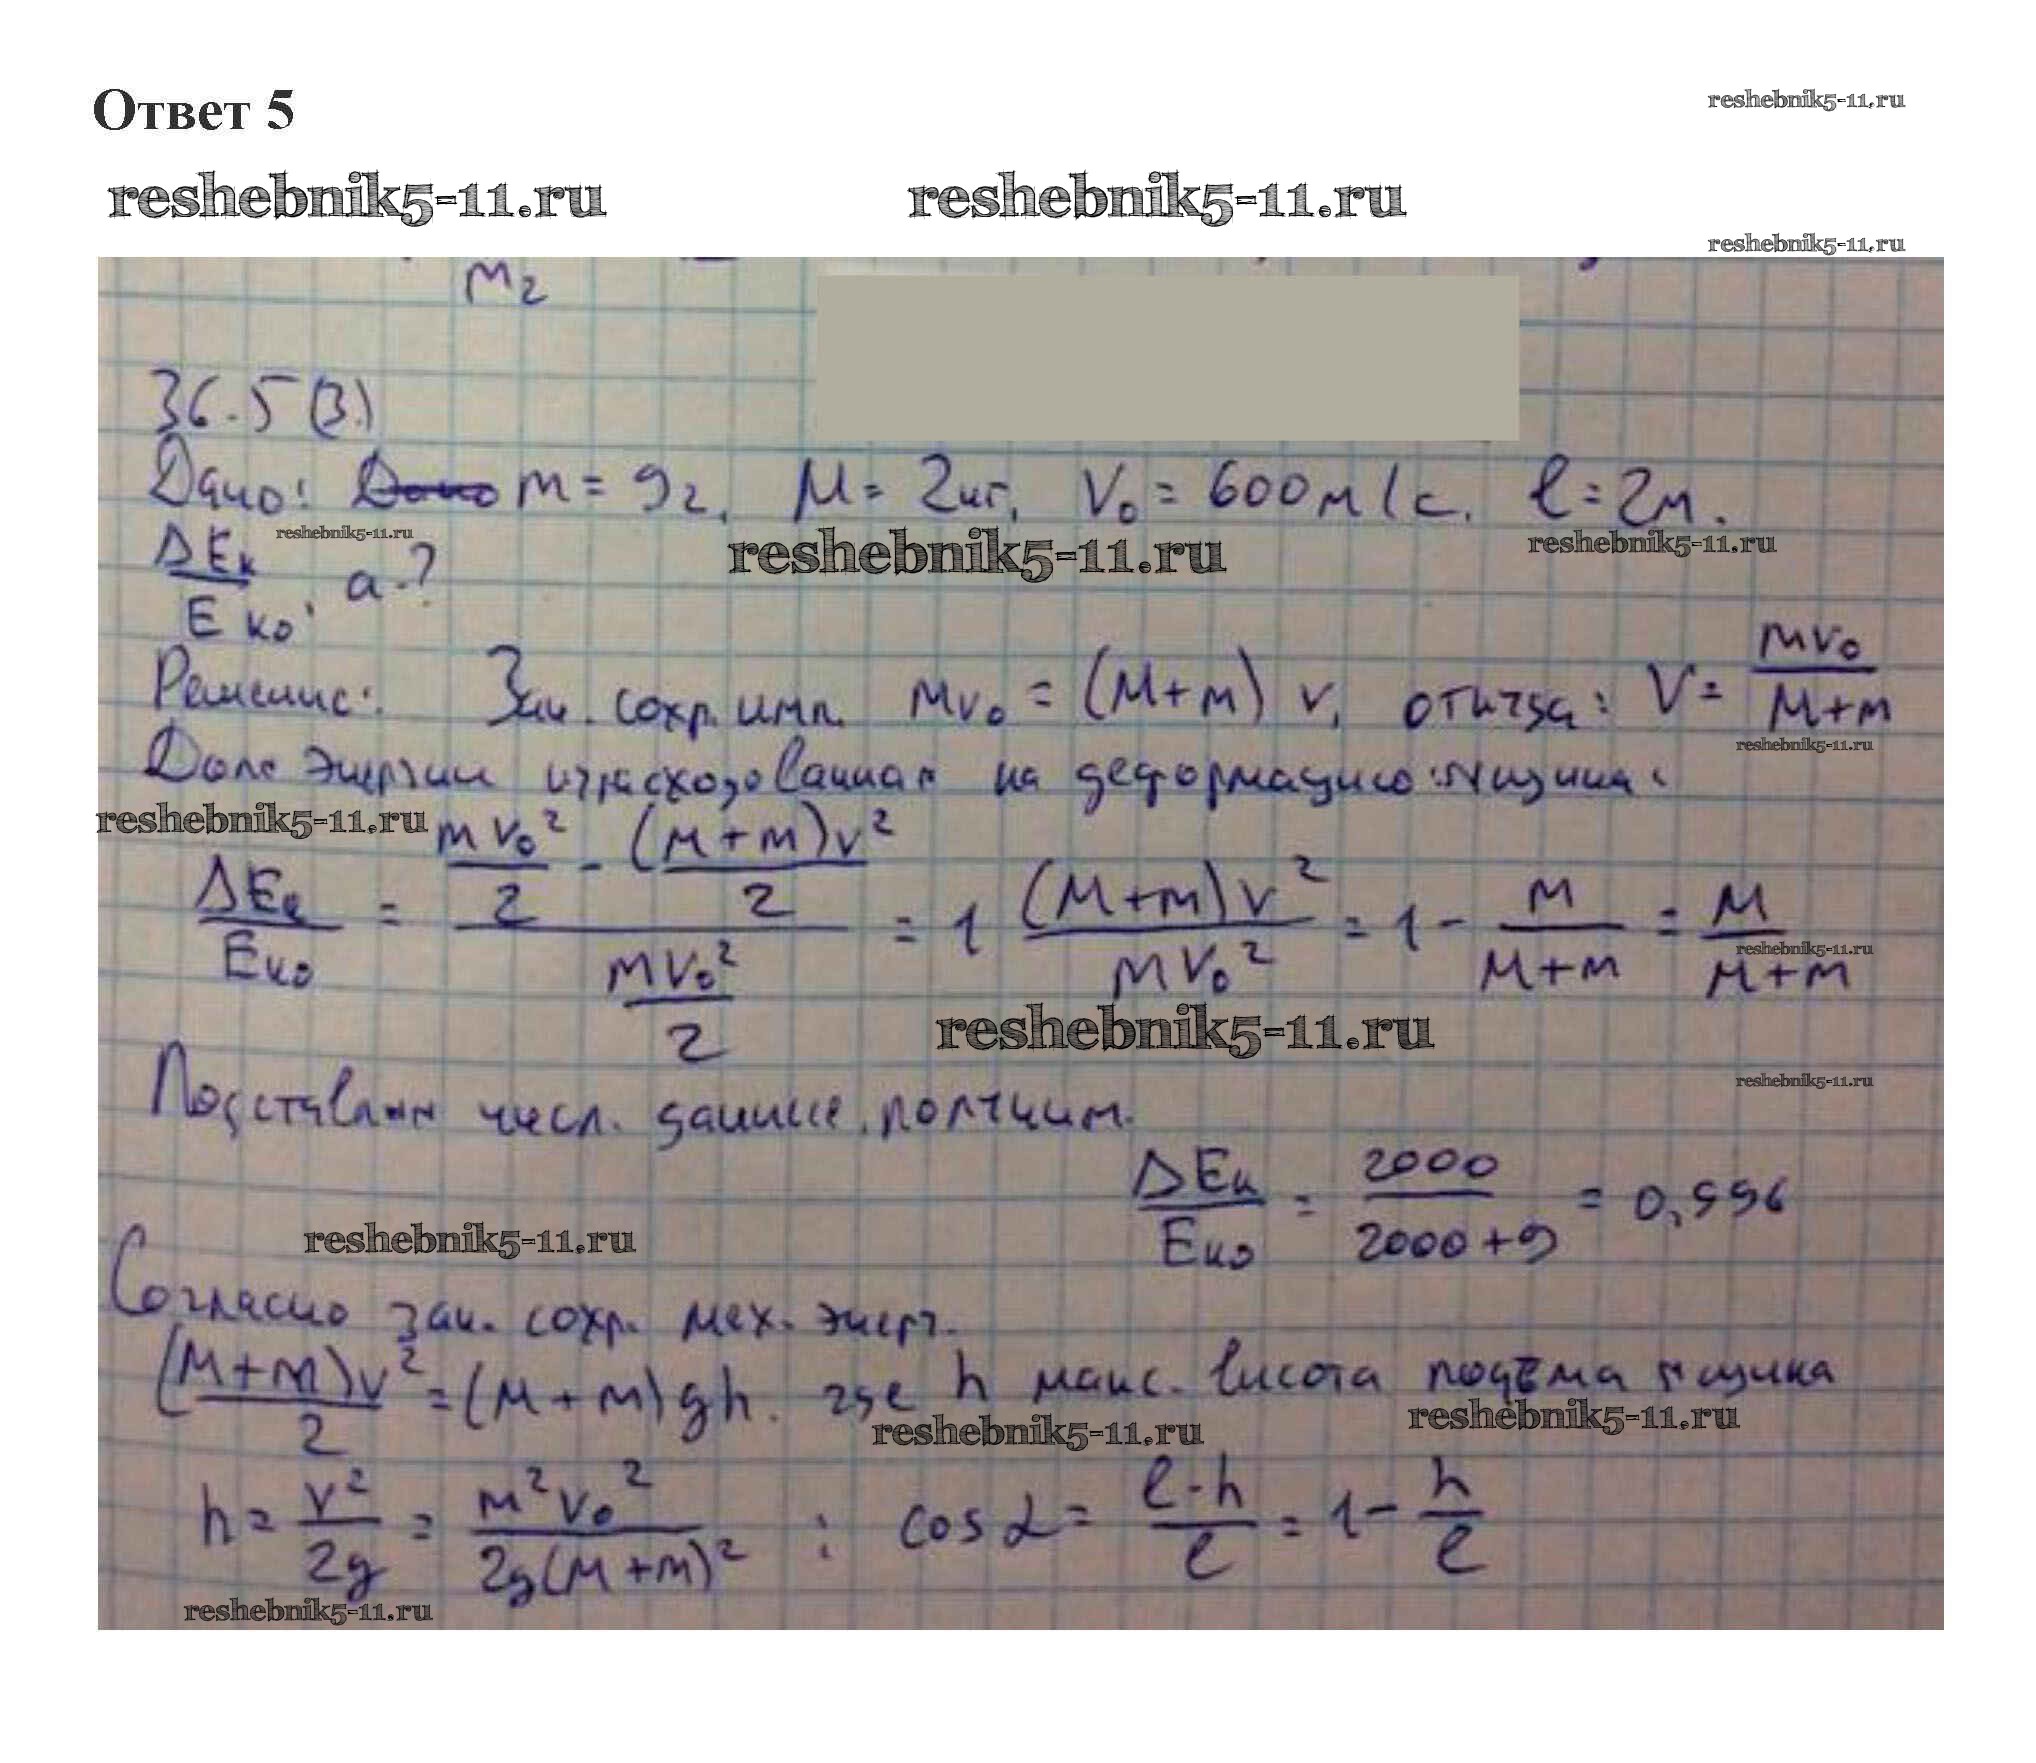 Ответ 5
reshebnik5-11.ru
reshebnik5-11.ru reshebnik5-11.ru
reshebnik5-11.ru
m₂
36.5(3.)
Дано: m = 9г, M = 2кг, V₀ = 600м/с, l = 2м.
reshebnik5-11.ru reshebnik5-11.ru reshebnik5-11.ru
ΔEк/Eко, a-?
Решение: Зак. сохр. имп. mv₀ = (M+m) v, откуда: V = mv₀/(M+m)
reshebnik5-11.ru
Доля энергии израсходованная на деформацию ящика:
reshebnik5-11.ru
ΔEк/Eко = (mv₀²/2 - (M+m)v²/2)/(mv₀²/2) = 1 (M+m)v²/mv₀² = 1 - m/(M+m) = M/(M+m)
reshebnik5-11.ru
reshebnik5-11.ru
reshebnik5-11.ru
Подставляя числ. данные, получим.
ΔEк/Eко = 2000/(2000+9) = 0,996
reshebnik5-11.ru
Согласно зак. сохр. мех. энерг.
(M+m)v²/2 = (M+m)gh. где h макс. высота подъёма ящика
reshebnik5-11.ru reshebnik5-11.ru
h = v²/2g = m²v₀²/2g(M+m)² ; cos α = (l-h)/l = 1 - h/l
reshebnik5-11.ru